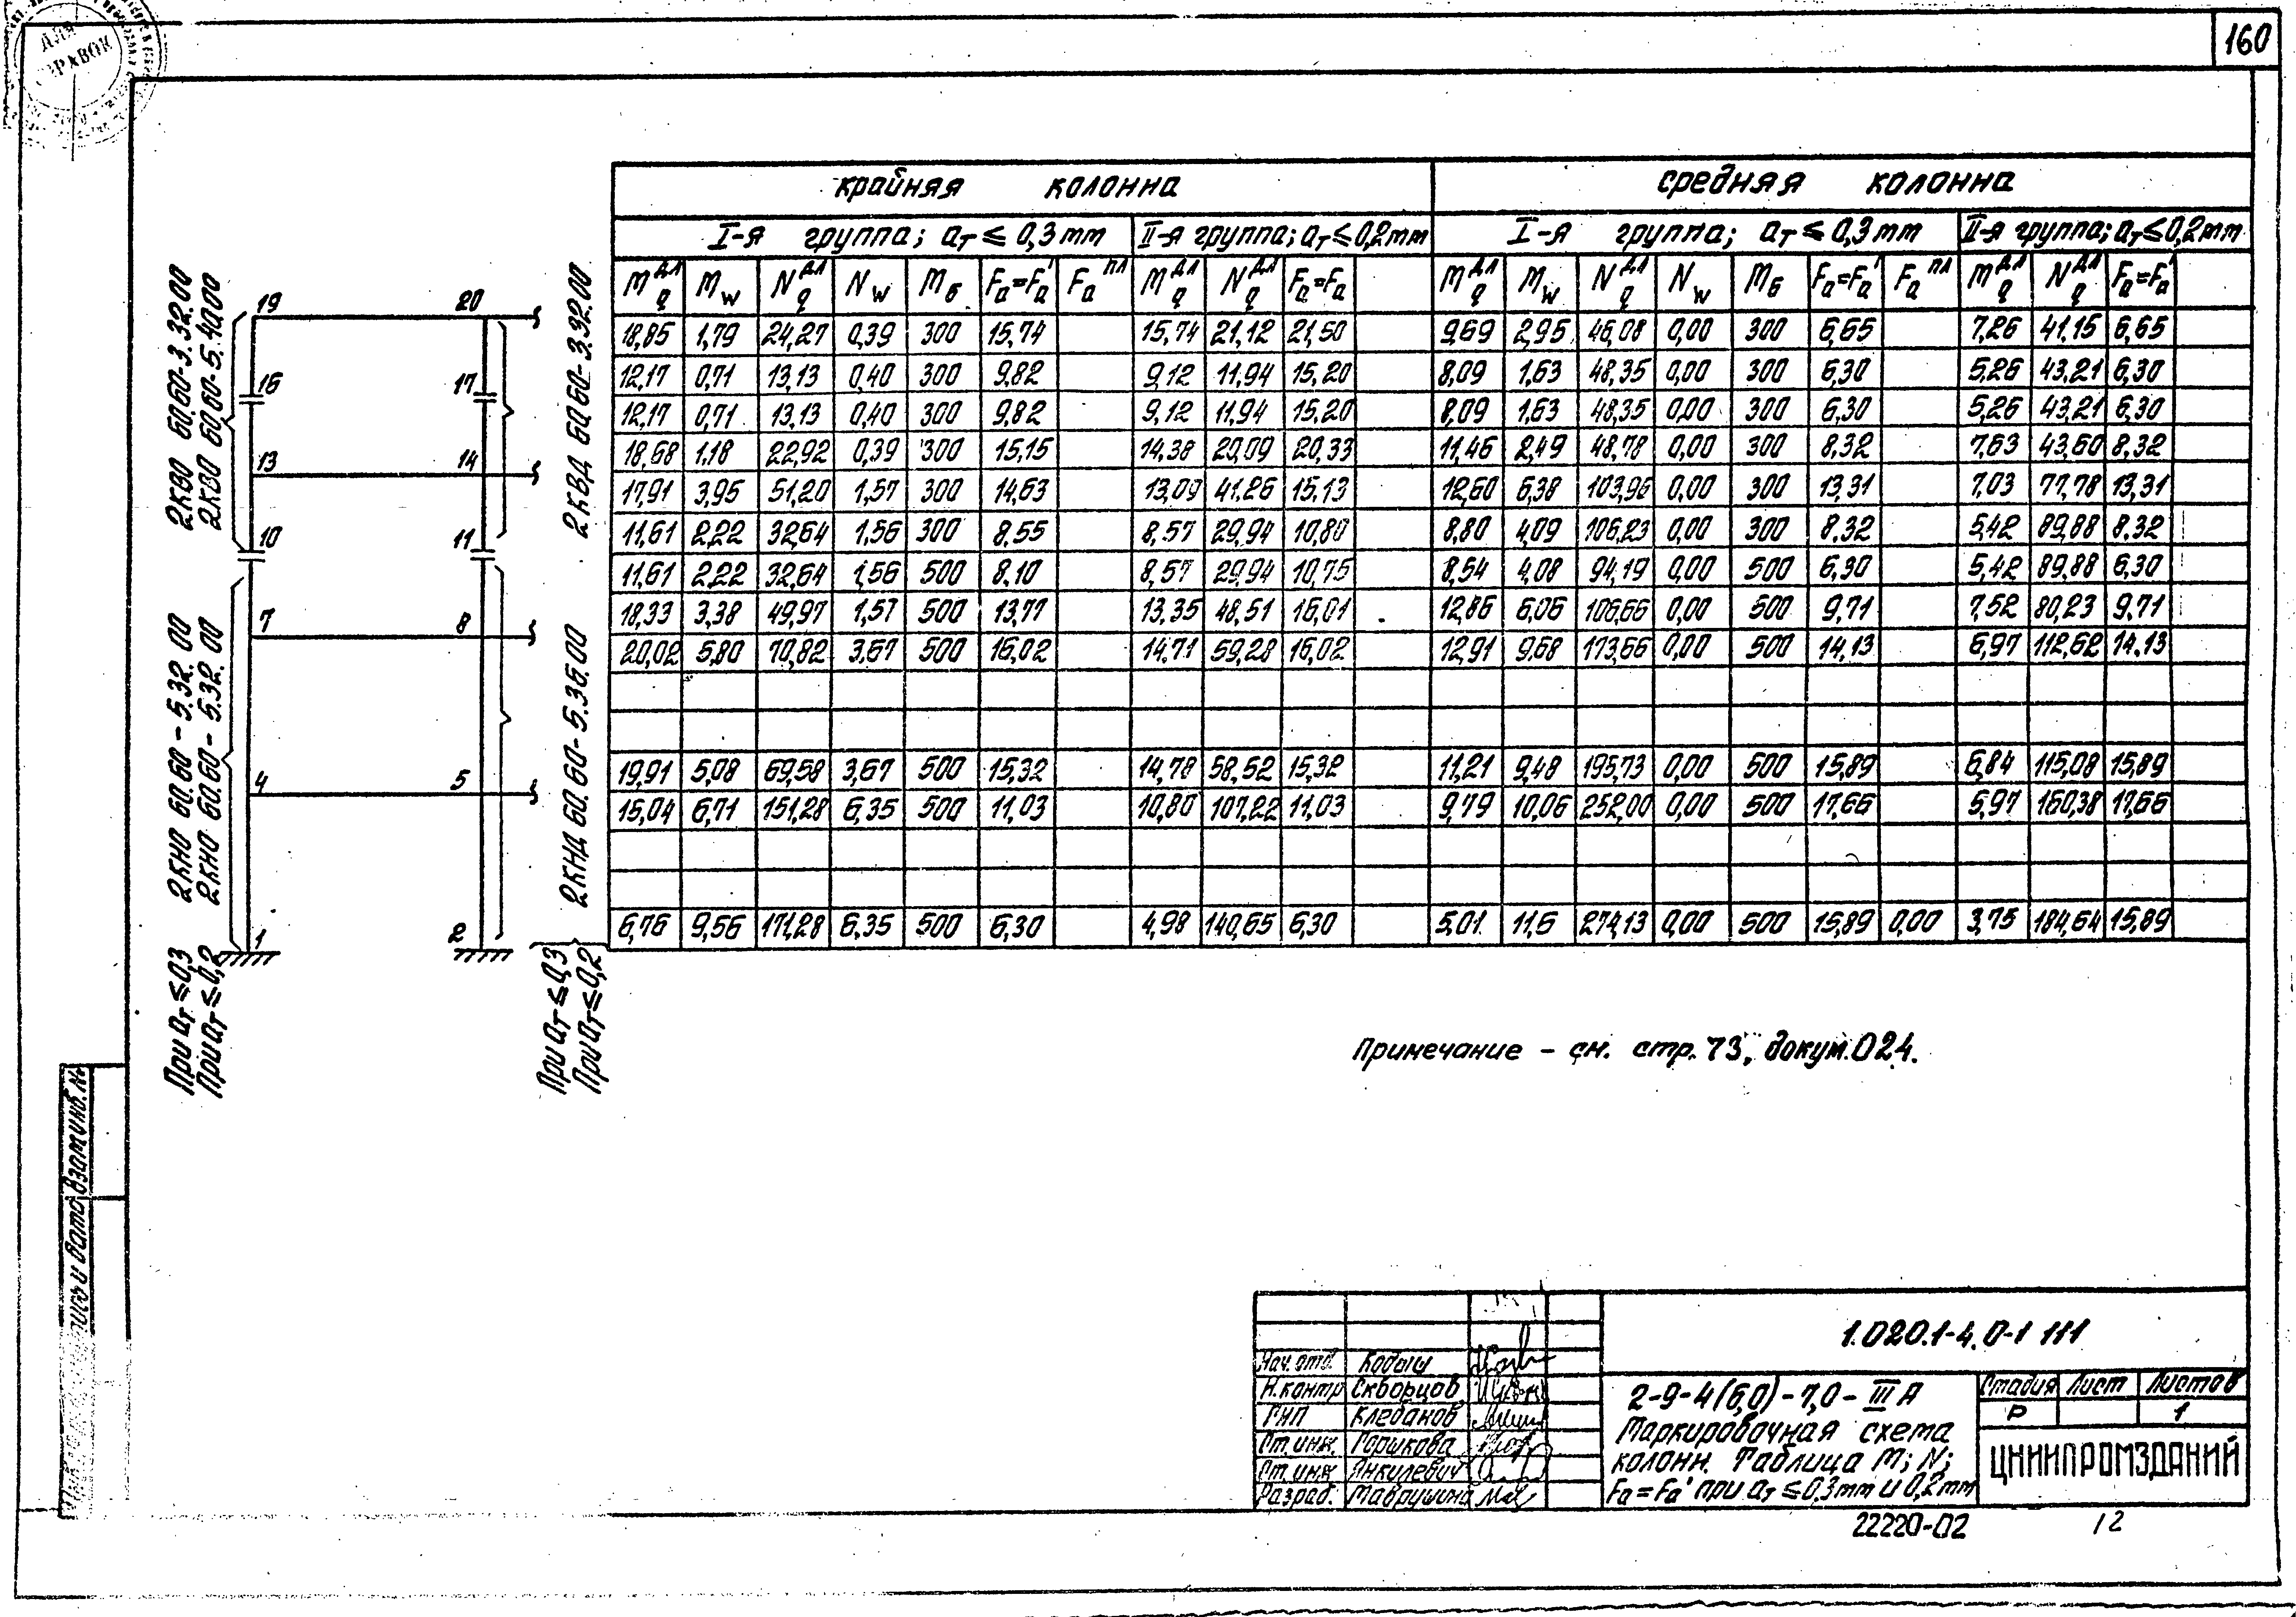 160
ДЛЯ
крайняя колонна средняя колонна
I-я группа; aт ≤ 0,3mm II-я группа; aт ≤ 0,2mm I-я группа; aт ≤ 0,3mm II-я группа; aт ≤ 0,2mm
Mqдл Mw Nqдл Nw Mб Fa=Fa' Faпл Mqдл Nqдл Fa=Fa Mqдл Mw Nqдл Nw Mб Fa=Fa' Faпл Mqдл Nqдл Fa=Fa'
18,85 1,79 24,27 0,39 300 15,74 15,74 21,12 21,50 9,69 2,95 46,08 0,00 300 6,65 7,26 41,15 6,65
12,17 0,71 13,13 0,40 300 9,82 9,12 11,94 15,20 8,09 1,63 48,35 0,00 300 6,30 5,26 43,21 6,30
12,17 0,71 13,13 0,40 300 9,82 9,12 11,94 15,20 8,09 1,63 48,35 0,00 300 6,30 5,26 43,21 6,30
18,68 1,18 22,92 0,39 300 15,15 14,38 20,09 20,33 11,46 2,49 48,78 0,00 300 8,32 7,63 43,60 8,32
17,91 3,95 51,20 1,57 300 14,63 13,09 41,26 15,13 12,60 6,38 103,96 0,00 300 13,31 7,03 77,78 13,31
11,61 2,22 32,64 1,56 300 8,55 8,57 29,94 10,80 8,80 4,09 106,23 0,00 300 8,32 5,42 89,88 8,32
11,61 2,22 32,64 1,56 500 8,10 8,57 29,94 10,75 8,54 4,08 94,19 0,00 500 6,30 5,42 89,88 6,30
18,33 3,38 49,97 1,57 500 13,77 13,35 48,51 16,01 12,86 6,06 106,66 0,00 500 9,71 7,52 80,23 9,71
20,02 5,80 70,82 3,67 500 16,02 14,71 59,28 16,02 12,91 9,68 173,66 0,00 500 14,13 6,97 112,62 14,13
19,91 5,08 69,58 3,67 500 15,32 14,78 58,52 15,32 11,21 9,48 195,73 0,00 500 15,89 6,84 115,08 15,89
15,04 6,71 151,28 6,35 500 11,03 10,80 107,22 11,03 9,79 10,06 252,00 0,00 500 17,66 5,97 160,38 17,66
6,76 9,56 171,28 6,35 500 6,30 4,98 140,65 6,30 5,01 11,6 274,13 0,00 500 15,89 0,00 3,75 184,64 15,89
19 20
16 17
13 14
10 11
7 8
4 5
1 2
2КВО 60.60-3.32.00
2КВО 60.60-5.40.00
2КНО 60.60-5.32.00
2КНО 60.60-5.32.00
При aт ≤ 0,3
При aт ≤ 0,2
2КВД 60.60-3.32.00
2КНД 60.60-5.36.00
При aт ≤ 0,3
При aт ≤ 0,2
Примечание - см. стр. 73, докум. 024.
Взам.инв.№
и дата
1.020.1-4.0-1 111
Нач. отд. Кодыш
Н.контр Скворцов
ГИП Клебанов
Ст.инж. Горшкова
Ст.инж Янкулевич
Разраб. Маврушина
2-9-4(6,0)-7,0-III А
Маркировочная схема
колонн. Таблица M; N;
Fa=Fa' при aт ≤ 0,3mm и 0,2mm
Стадия Лист Листов
Р 1
ЦНИИПРОМЗДАНИЙ
22220-02 12